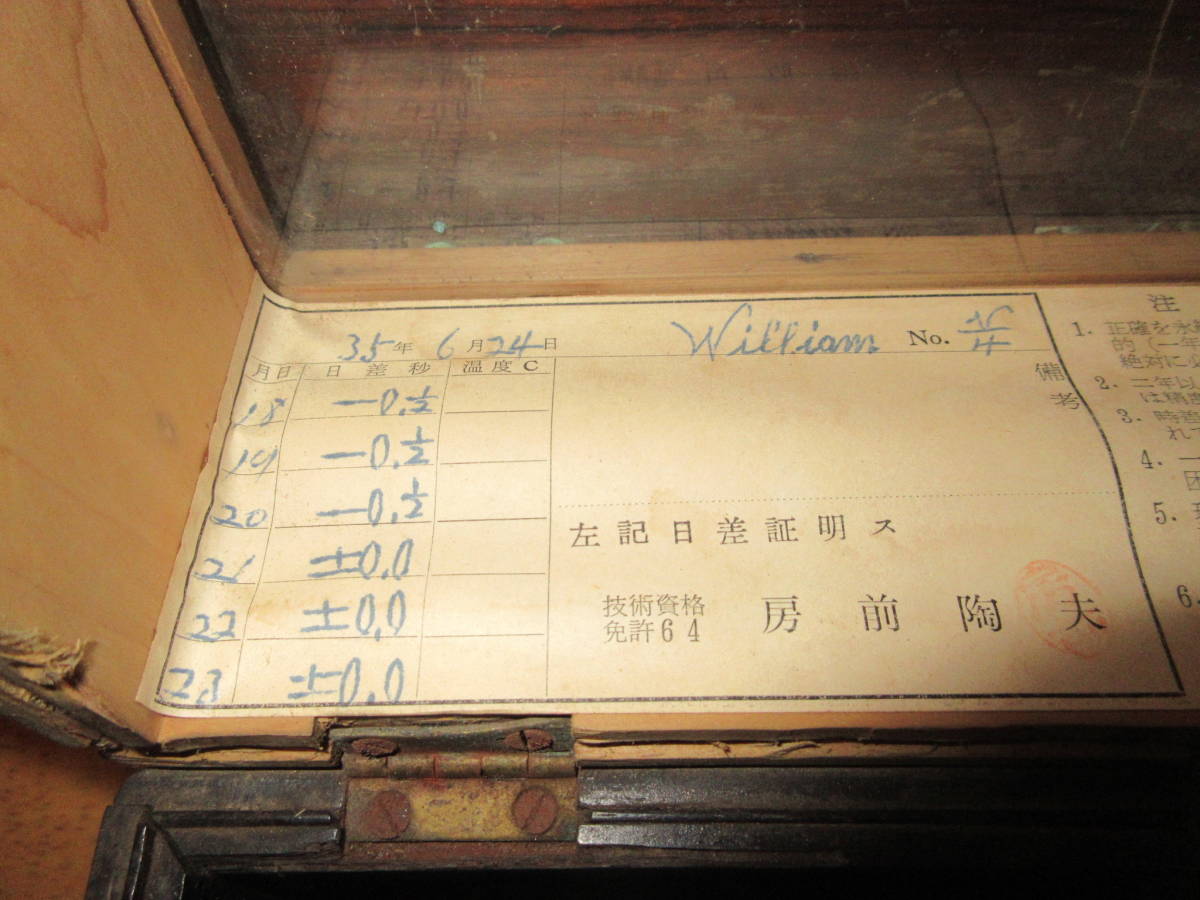 35年6月24日 William No.
月日 日差秒 温度C
18 -0.½
19 -0.½
20 -0.½
21 ±0.0
22 ±0.0
23 ±0.0
備考
左記日差証明ス
技術資格
免許64
房前陶夫
注
1. 正確を
的(一年
絶対に
2. 二年以
は精
3. 時差
れて
4. 一
5.
6.